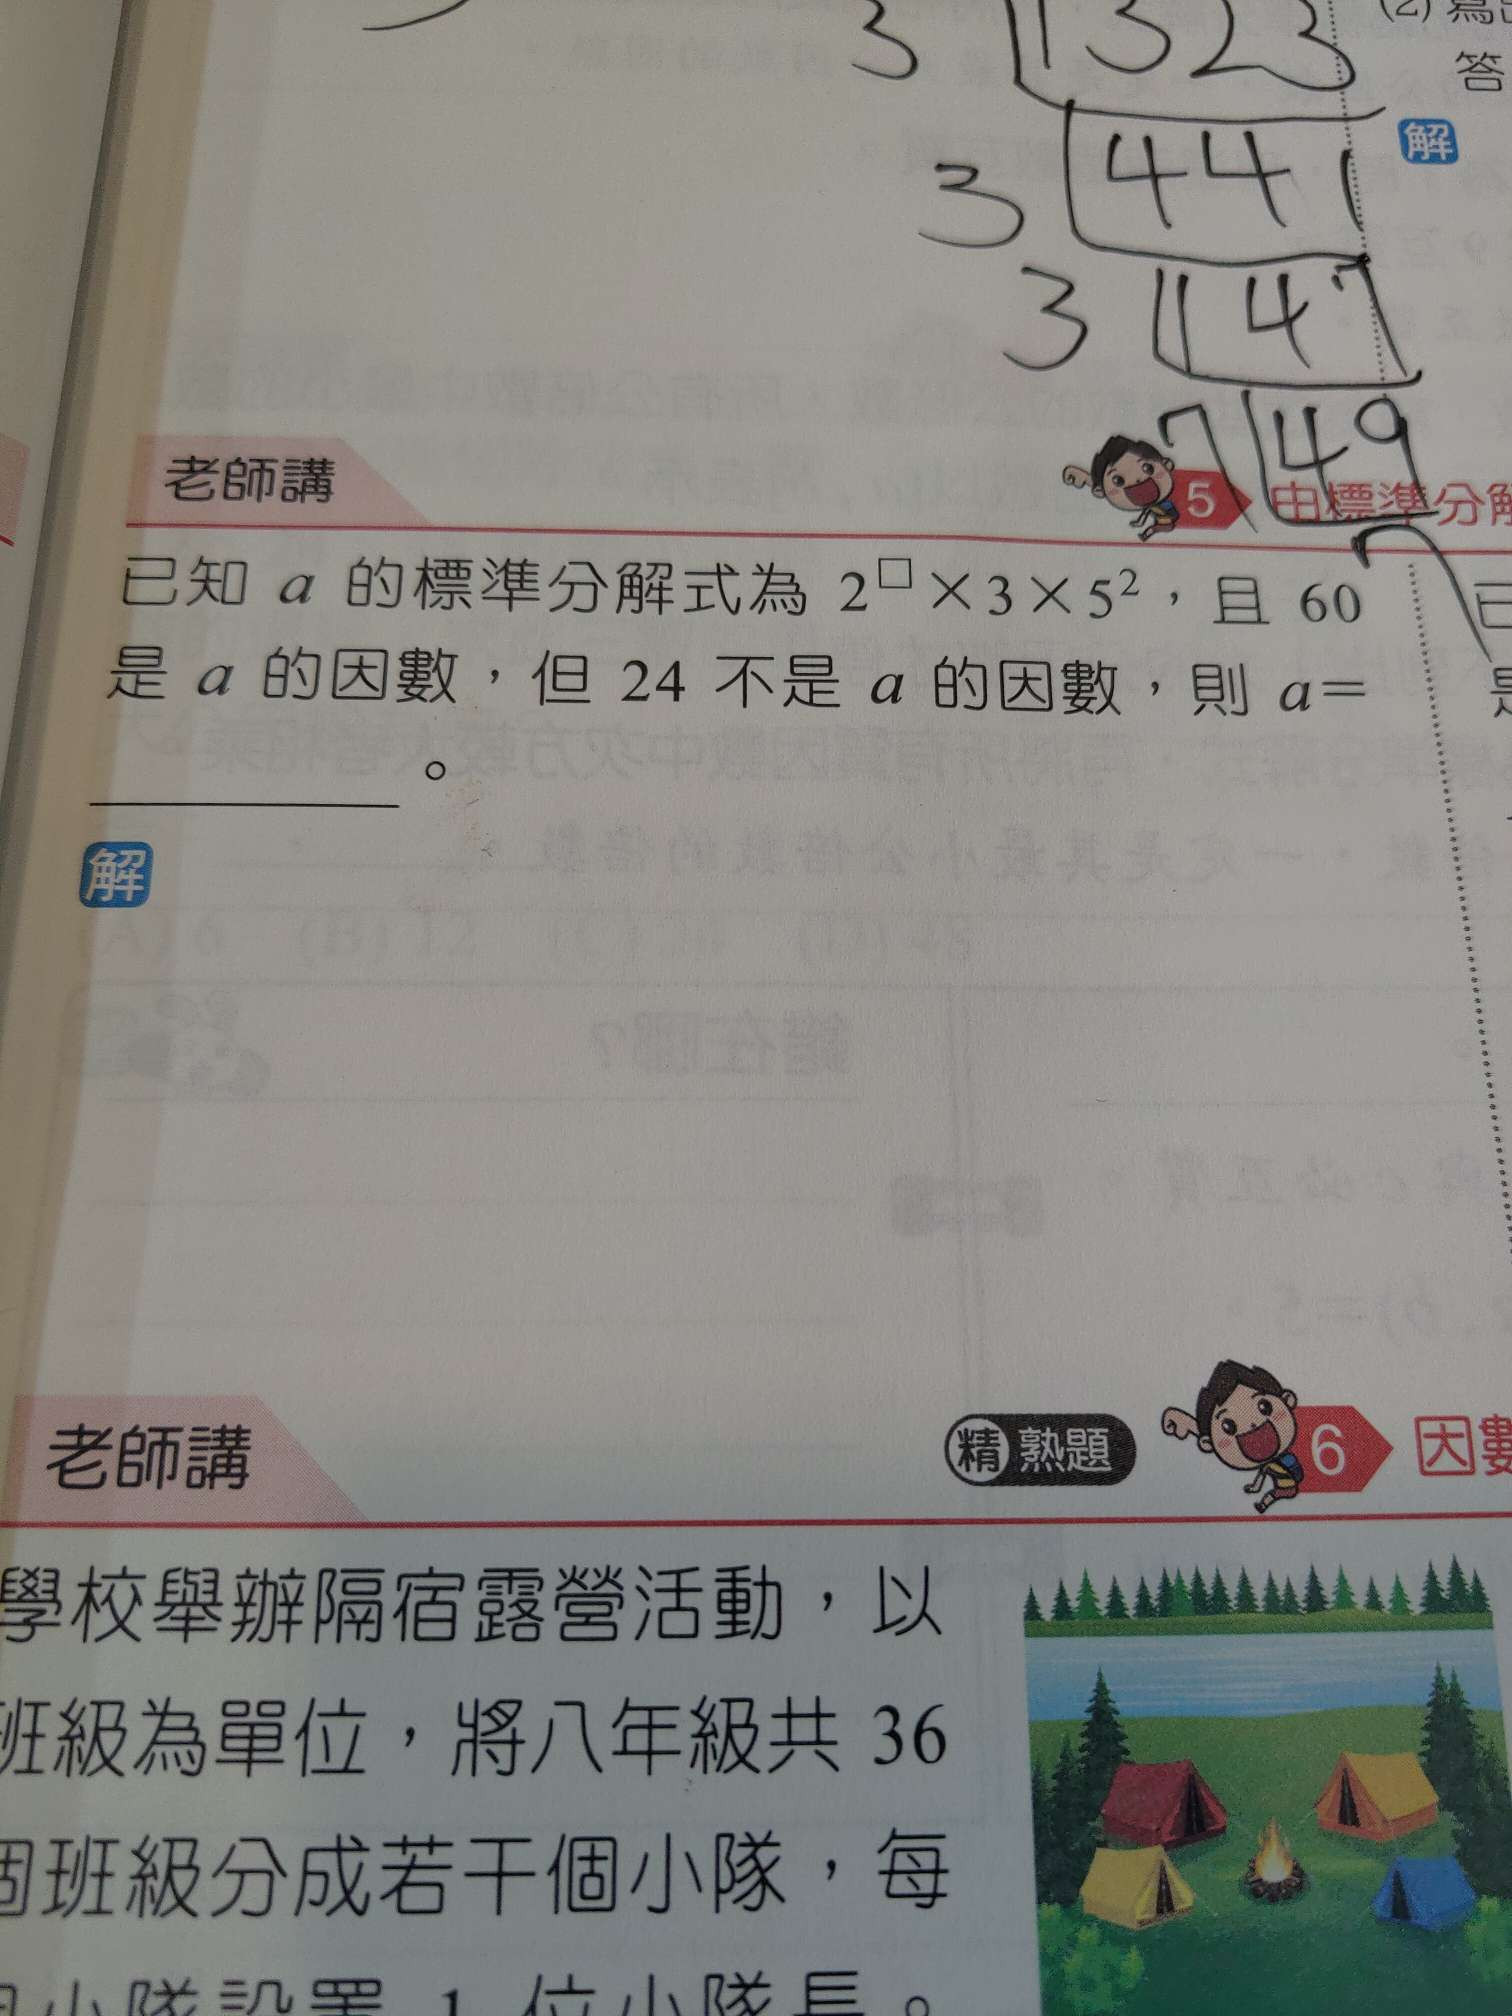 (2)
答
3 1323
解
3 441
3 147
7 49
7
老師講
5 由標準分解
已知 a 的標準分解式為 2^□×3×5²，且 60
是 a 的因數，但 24 不是 a 的因數，則 a＝
。
解
老師講
精熟題 6 因數
學校舉辦隔宿露營活動，以
班級為單位，將八年級共 36
個班級分成若干個小隊，每
小隊設置 1 位小隊長。